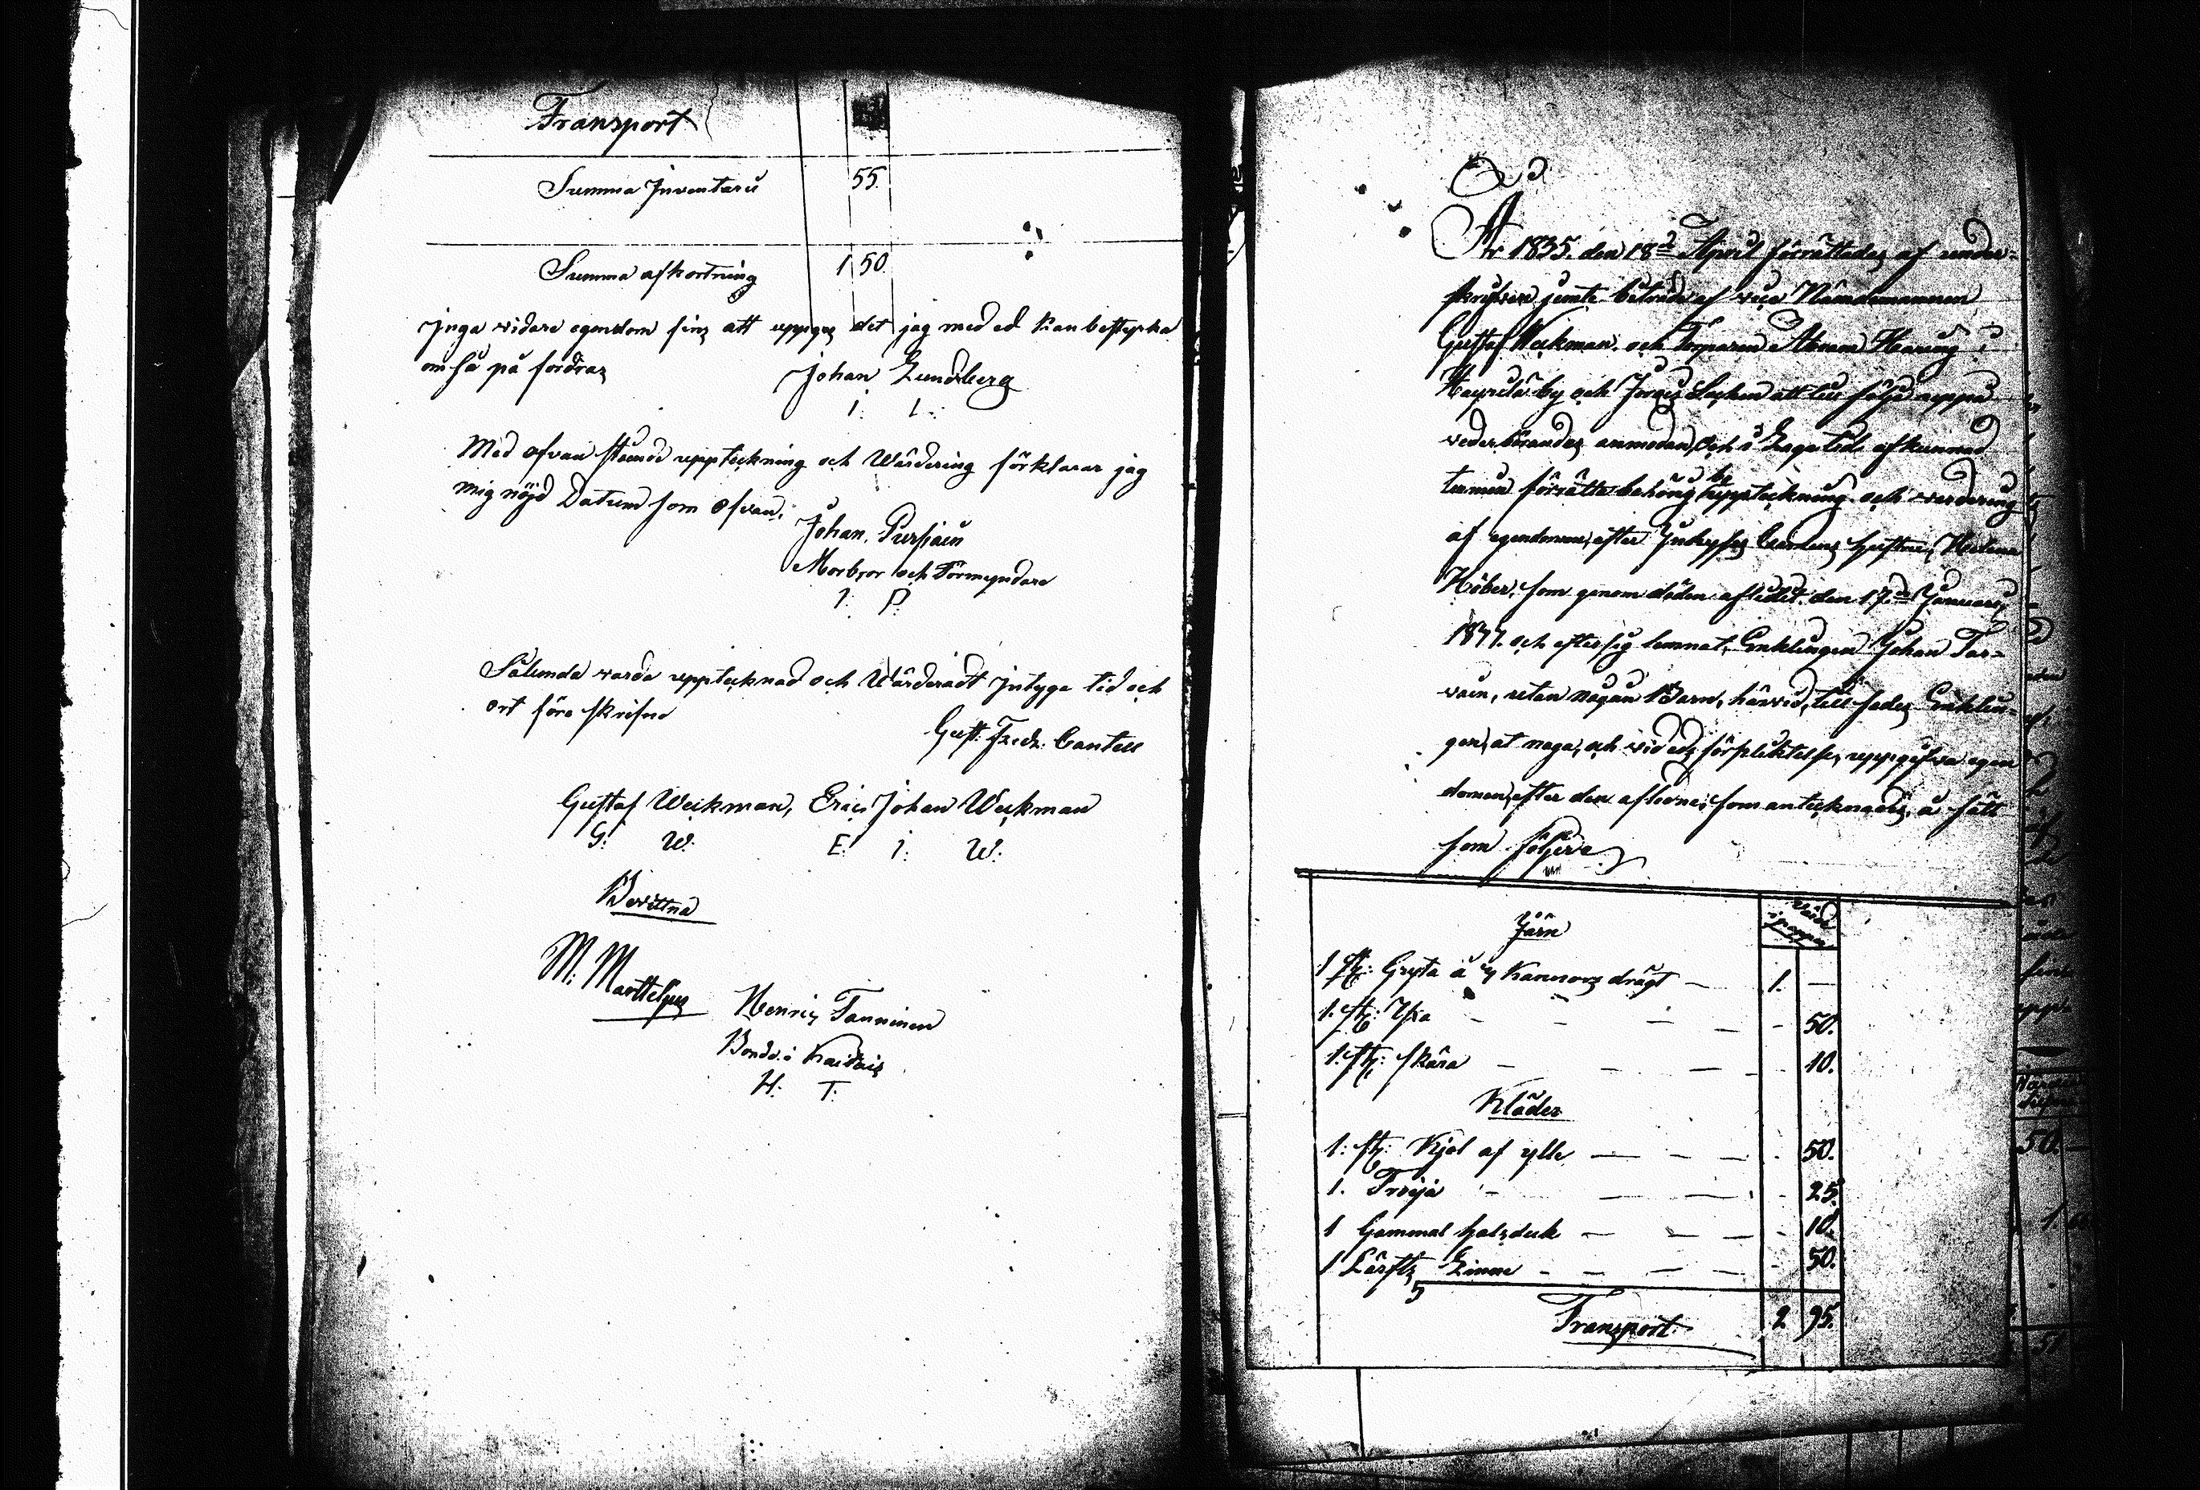 Transport
Summa Inventarii 55.
Summa afkortning 1 50
Inga vidare egendom fins att uppges det jag med ed kan bestyrka
om så på fordras
Johan Lundberg
I: L:
Med ofvan stående uppteckning och Wärdering förklarar jag
mig nöjd Datum som ofvan.
Johan
Morbror och Förmyndare
I: P:
Sålunda vara upptecknad och Wärderadt intyga tid och
ort före skrifne
Gust: Fredr: Cantell
Gustaf Weckman, Eric Johan Weckman
G: W: E: I: W:
Bevittna
M: Marttelius
Henric Tanninen
Bonde i
H: T:
År 1835. den 18de April förrättades af under-
skrifven jemte biträde af vice Nämdemannen
Gustaf Weckman och Torparen Abram
by och att till följe uppå
vederbörandes anmodan, och i Laga tid afkunnad
termin förrätta behörig uppteckning och värdering
af egendomen, efter Hustru, Helena
Höber, som genom döden aflidit den 17de Januarij
och efter sig lemnat, Enklingen Johan Tar-
vain, utan någan Barn, härvid, till sades Enklin-
gen, at noga, och vid eds förpliktelse, uppgifva egen
domen, efter den aflidne, som antecknades, å sätt
som följer
Järn
1 st: Gryta à Kannors drägt — 1. —
1. st: Yxa — — — 50.
1. st: skära — — — 10.
Kläder
1: st: Kjol af ylle — — — 50.
1. Tröja — — — 25.
1 Gammal halsduk — — — 10.
1 Lärfts Linne — — — 50.
Transport 2 95.